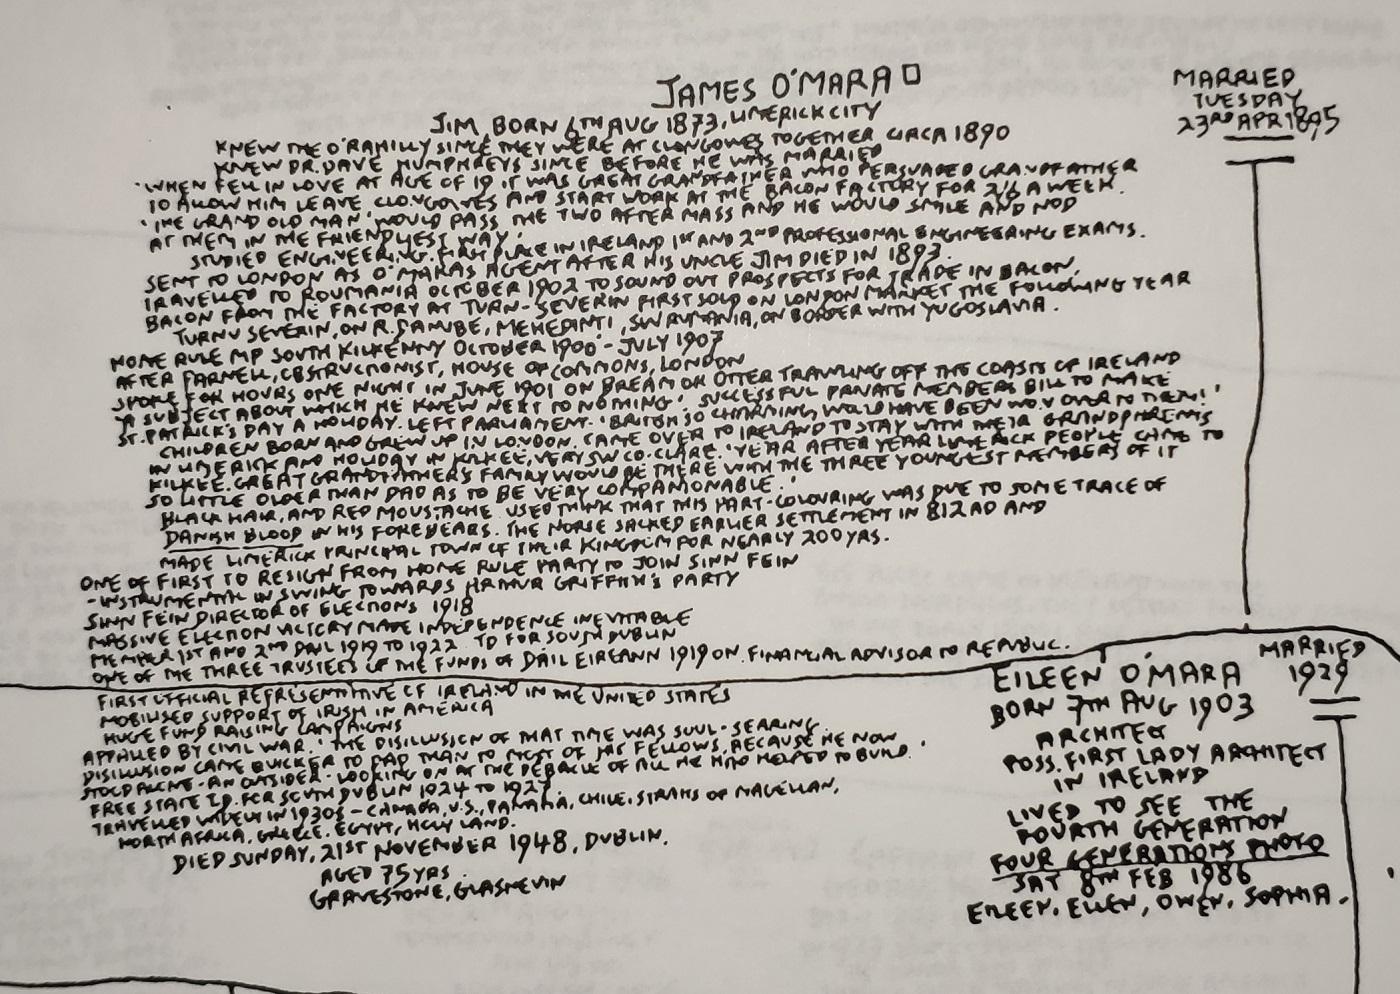 JAMES O'MARA
JIM, BORN 6TH AUG 1873, LIMERICK CITY
KNEW THE O'RAHILLY SINCE THEY WERE AT CLONGOWES TOGETHER CIRCA 1890
KNEW DR. DAVE HUMPHREYS SINCE BEFORE HE WAS MARRIED
'WHEN FELL IN LOVE AT AGE OF 19 IT WAS GREAT GRANDFATHER WHO PERSUADED GRANDFATHER
TO ALLOW HIM LEAVE CLONGOWES AND START WORK AT THE BACON FACTORY FOR 2/6 A WEEK.
'THE GRAND OLD MAN' WOULD PASS THE TWO AFTER MASS AND HE WOULD SMILE AND NOD
AT THEM IN THE FRIENDLIEST WAY.'
STUDIED ENGINEERING. FIRST PLACE IN IRELAND 1ST AND 2ND PROFESSIONAL ENGINEERING EXAMS.
SENT TO LONDON AS O'MARAS AGENT AFTER HIS UNCLE JIM DIED IN 1893.
TRAVELLED TO ROUMANIA OCTOBER 1902 TO SOUND OUT PROSPECTS FOR TRADE IN BACON.
BACON FROM THE FACTORY AT TURN-SEVERIN FIRST SOLD ON LONDON MARKET THE FOLLOWING YEAR
TURNU SEVERIN, ON R. DANUBE, MEHEDINTI, SW RUMANIA, ON BORDER WITH YUGOSLAVIA.
HOME RULE MP SOUTH KILKENNY OCTOBER 1900 - JULY 1907
AFTER PARNELL, OBSTRUCTIONIST, HOUSE OF COMMONS, LONDON
SPOKE FOR HOURS ONE NIGHT IN JUNE 1901 ON BREAM OR OTTER TRAWLING OFF THE COASTS OF IRELAND
'A SUBJECT ABOUT WHICH HE KNEW NEXT TO NOTHING'. SUCCESSFUL PRIVATE MEMBERS BILL TO MAKE
ST. PATRICK'S DAY A HOLIDAY. LEFT PARLIAMENT. 'BRITISH SO CHARMING, WOULD HAVE BEEN WON OVER TO THEM!'
CHILDREN BORN AND GREW UP IN LONDON. CAME OVER TO IRELAND TO STAY WITH THEIR GRANDPARENTS
IN LIMERICK AND HOLIDAY IN KILKEE, VERY SW CO. CLARE. 'YEAR AFTER YEAR LIMERICK PEOPLE CAME TO
KILKEE. GREAT GRANDFATHER'S FAMILY WOULD BE THERE WITH THE THREE YOUNGEST MEMBERS OF IT
SO LITTLE OLDER THAN DAD AS TO BE VERY COMPANIONABLE.'
BLACK HAIR, AND RED MOUSTACHE USED THINK THAT THIS PART-COLOURING WAS DUE TO SOME TRACE OF
DANISH BLOOD IN HIS FOREBEARS. THE NORSE SACKED EARLIER SETTLEMENT IN 812 AD AND
MADE LIMERICK PRINCIPAL TOWN OF THEIR KINGDOM FOR NEARLY 200 YRS.
ONE OF FIRST TO RESIGN FROM HOME RULE PARTY TO JOIN SINN FEIN
- INSTRUMENTAL IN SWING TOWARDS ARTHUR GRIFFITH'S PARTY
SINN FEIN DIRECTOR OF ELECTIONS 1918
MASSIVE ELECTION VICTORY MADE INDEPENDENCE INEVITABLE
MEMBER 1ST AND 2ND DAIL 1919 TO 1922 TD FOR SOUTH DUBLIN
ONE OF THE THREE TRUSTEES OF THE FUNDS OF DAIL EIREANN 1919 ON. FINANCIAL ADVISOR TO REPUBLIC.
FIRST OFFICIAL REPRESENTATIVE OF IRELAND IN THE UNITED STATES
MOBILISED SUPPORT OF IRISH IN AMERICA
HUGE FUND RAISING CAMPAIGNS
APPALLED BY CIVIL WAR. 'THE DISILLUSION OF THAT TIME WAS SOUL-SEARING.
DISILLUSION CAME QUICKER TO DAD THAN TO MOST OF HIS FELLOWS, BECAUSE HE NOW
STOOD ALONE - AN OUTSIDER - LOOKING ON AT THE DEBACLE OF ALL HE HAD HELPED TO BUILD.'
FREE STATE T.D. FOR SOUTH DUBLIN 1924 TO 1927.
TRAVELLED WIDELY IN 1930S - CANADA, U.S., PANAMA, CHILE, STRAITS OF MAGELLAN,
NORTH AFRICA, GREECE, EGYPT, HOLY LAND.
DIED SUNDAY, 21ST NOVEMBER 1948, DUBLIN.
AGED 75 YRS.
GRAVESTONE, GLASNEVIN
MARRIED
TUESDAY
23RD APR 1895
EILEEN O'MARA
BORN 7TH AUG 1903
ARCHITECT
POSS. FIRST LADY ARCHITECT
IN IRELAND
LIVED TO SEE THE
FOURTH GENERATION
FOUR GENERATIONS PHOTO
SAT 8TH FEB 1986
EILEEN, ELLEN, OWEN, SOPHIA.
MARRIED
1929